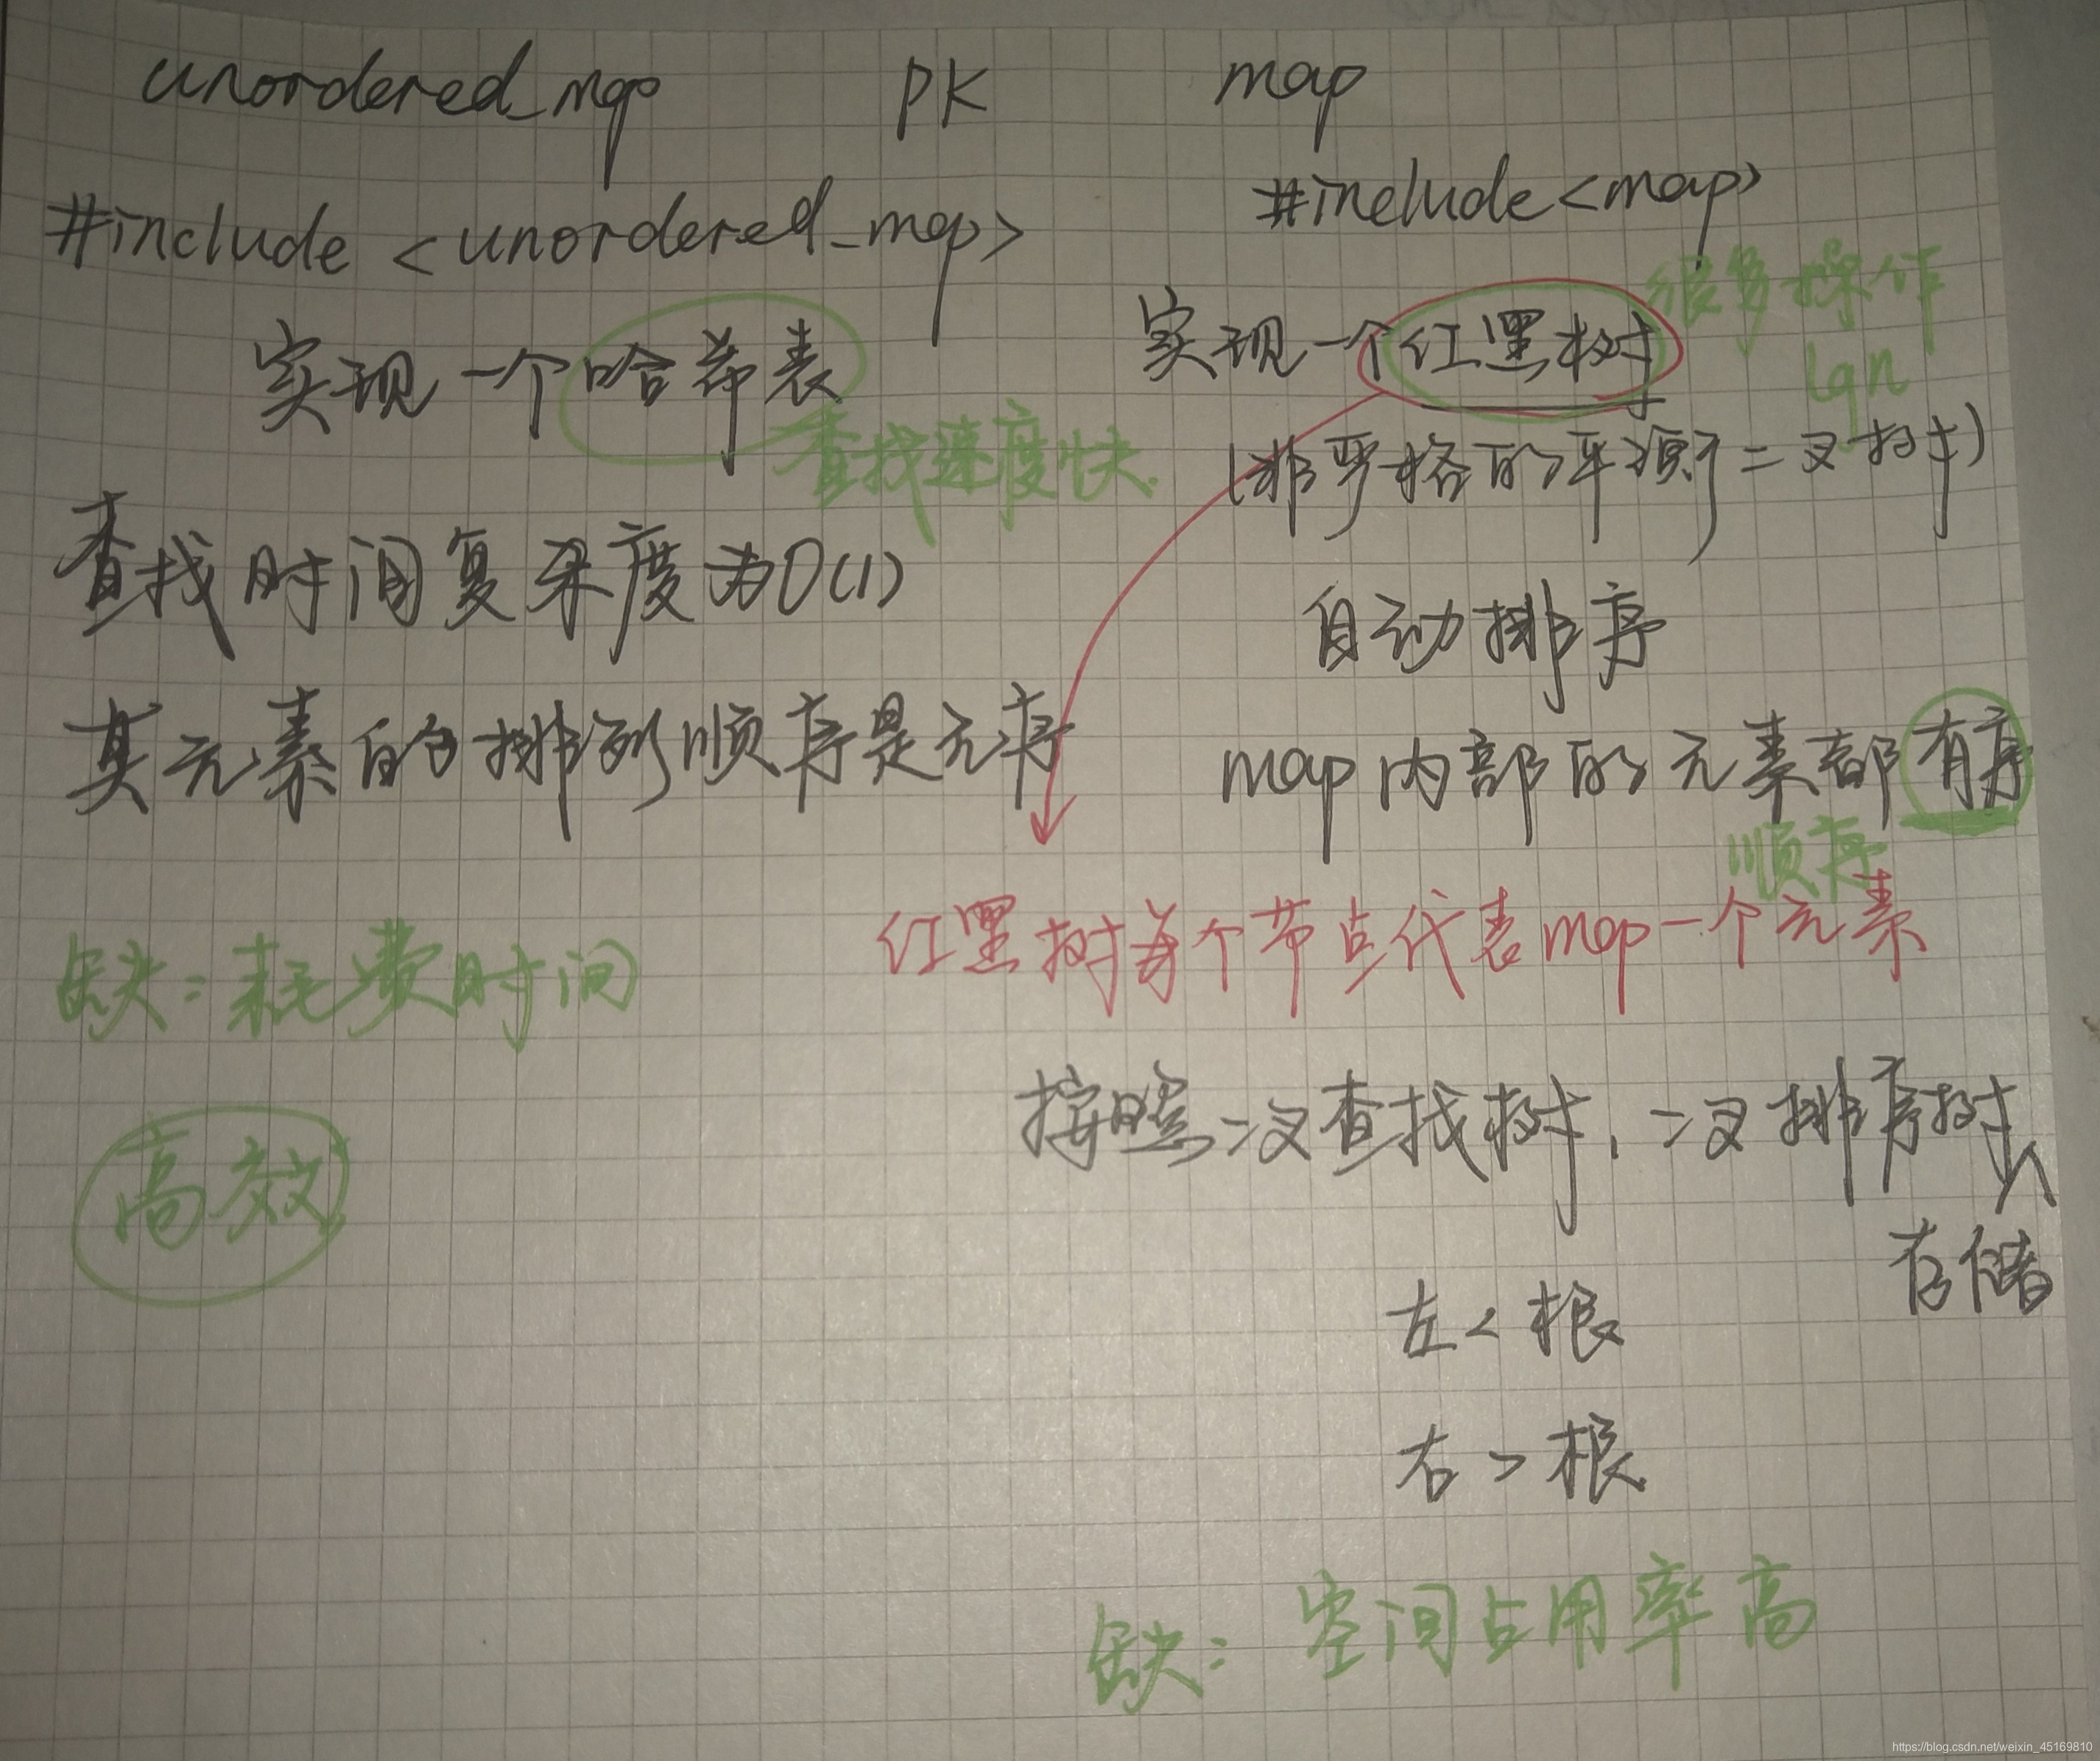 unordered_map PK map
#include <unordered_map>
实现一个哈希表
查找速度快.
查找时间复杂度为O(1)
其元素的排列顺序是无序
缺:耗费时间
高效
#include<map>
实现一个红黑树
很多操作
lgn
(非严格的平衡二叉树)
自动排序
map内部的元素都有序
顺序
红黑树每个节点代表map一个元素
按照二叉查找树,二叉排序树
存储
左<根
右>根
缺:空间占用率高
https://blog.csdn.net/weixin_45169810